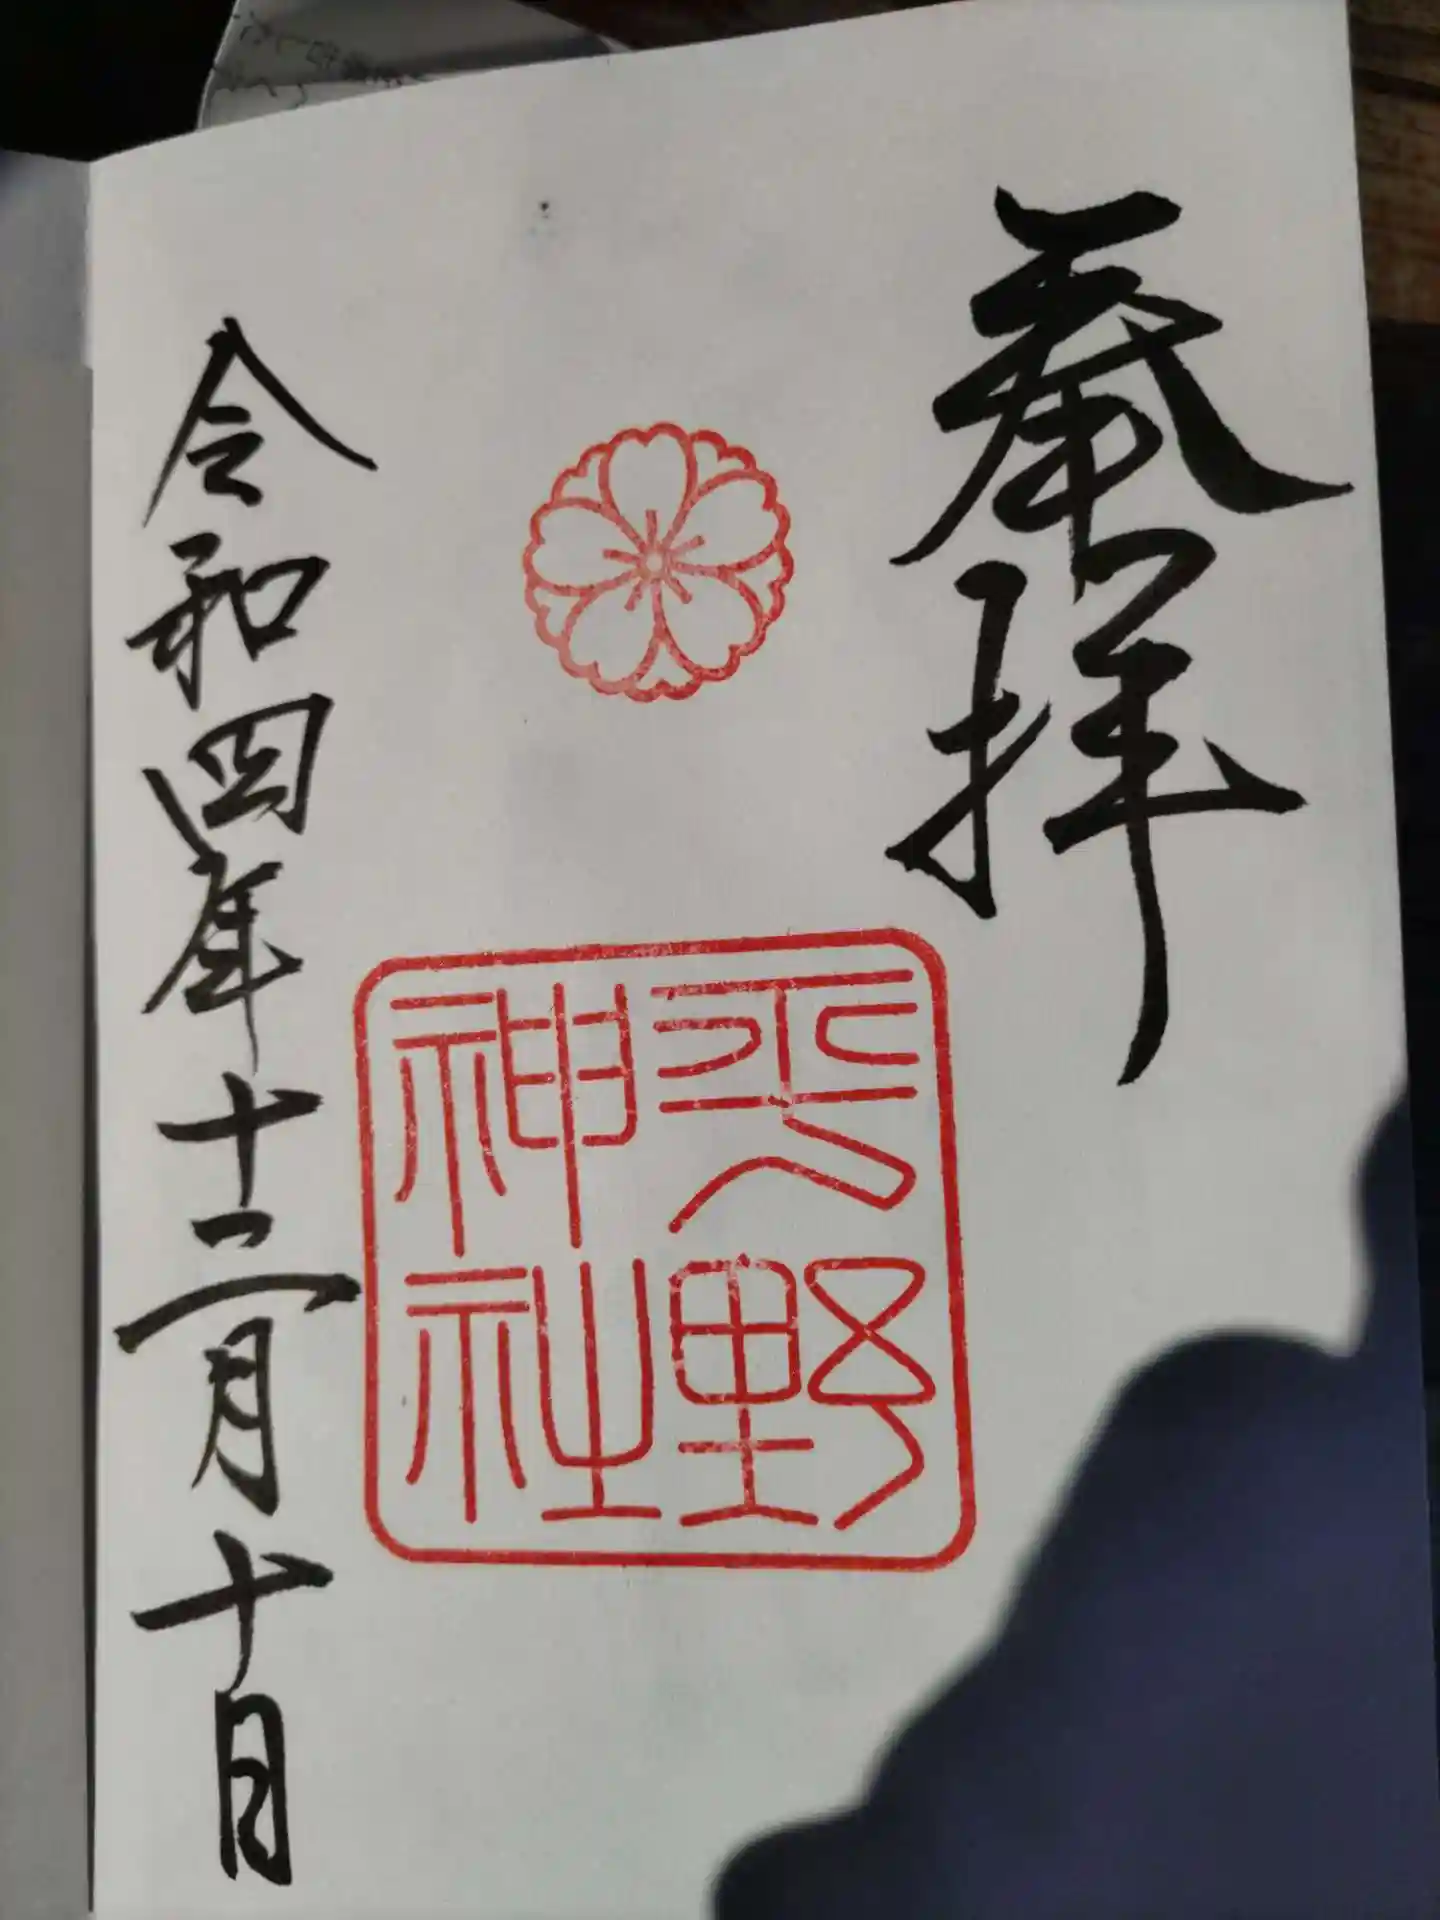 奉拝
平野神社
令和四年十二月十日